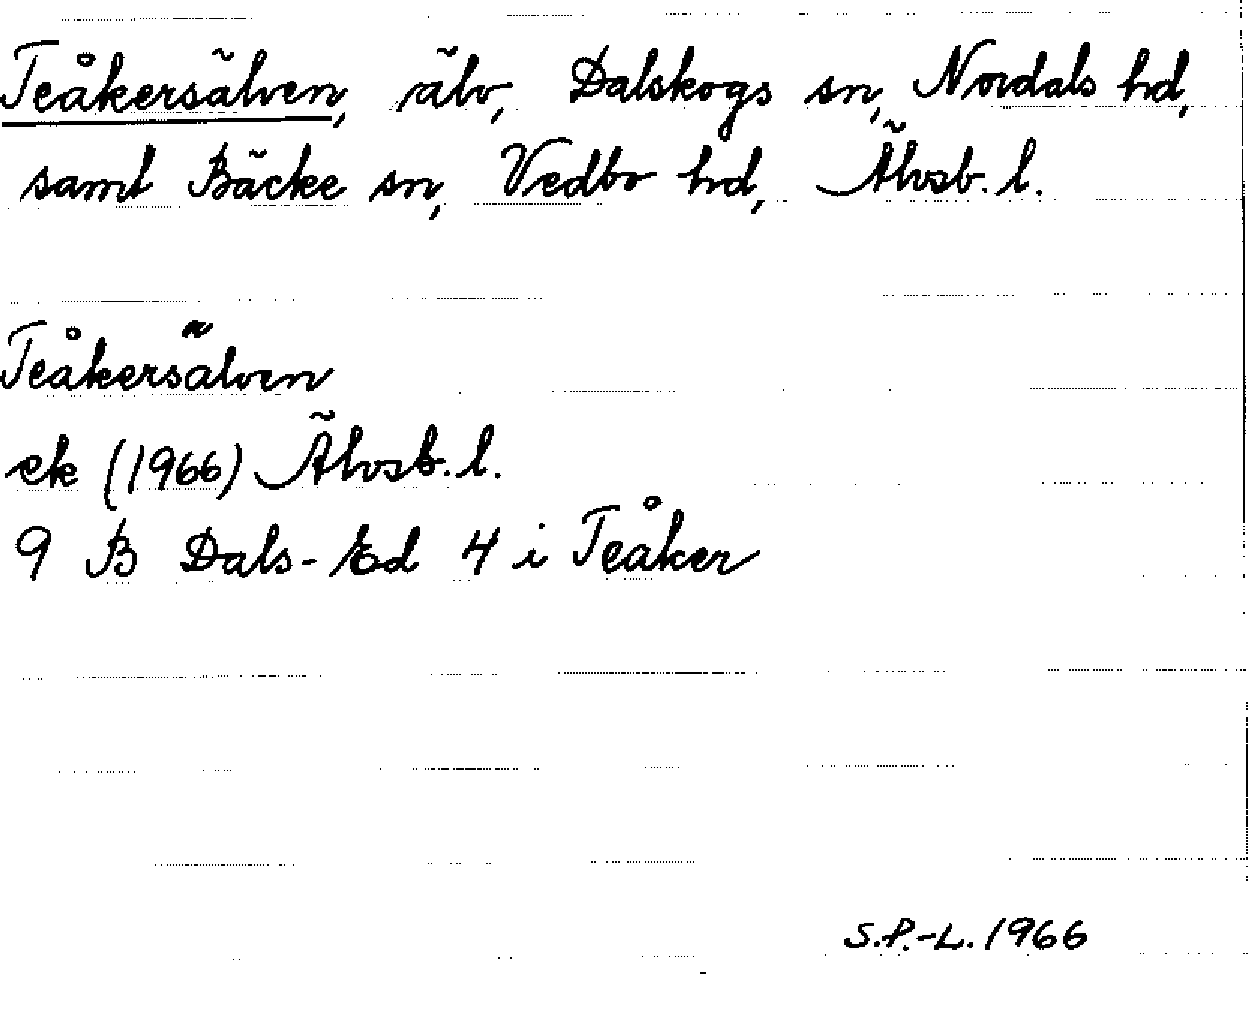 Teåkersälven, älv, Dalskogs sn, Nordals hd,
samt Bäcke sn, Vedbo hd, Älvsb. l.
Teåkersälven
ek (1966) Älvsb. l.
9 B Dals-Ed 4 i Teåker
S.P.-L. 1966